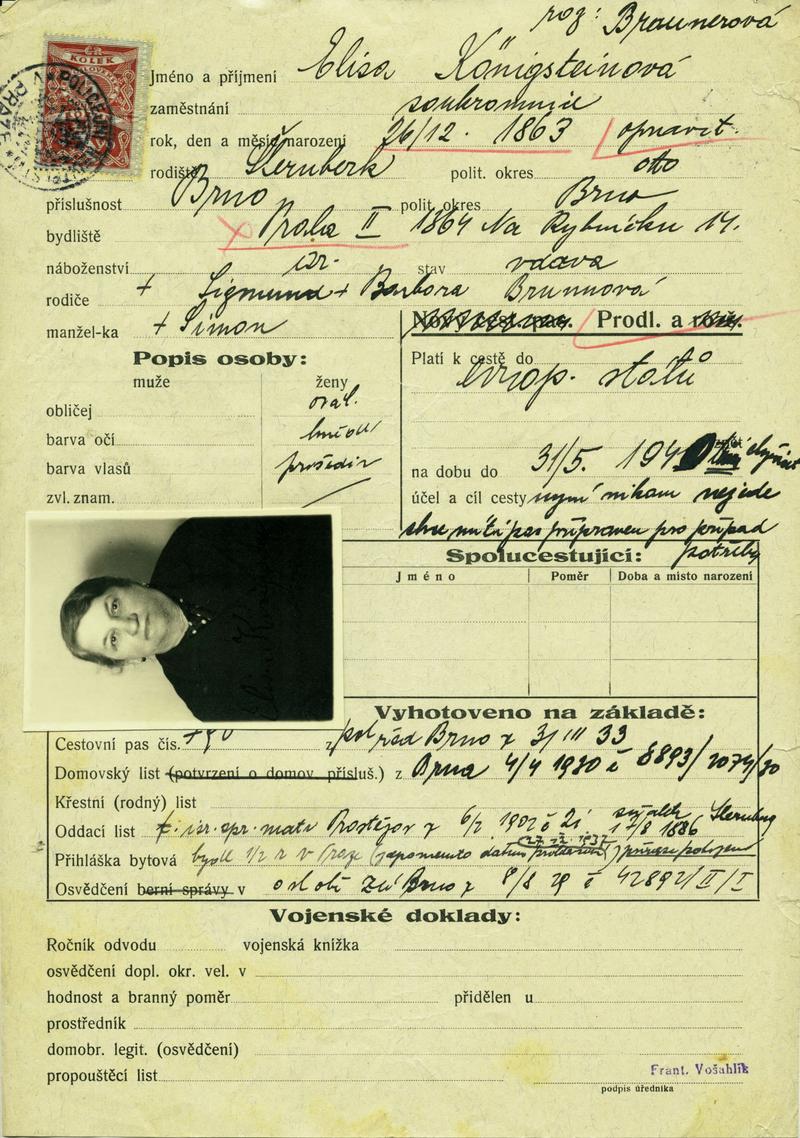 roz: Braunerová
ČR
KOLEK
POLICEJNÍ
V PRAZE
Jméno a příjmení Elisa Königsteinová
zaměstnání soukromnice
rok, den a měsíc narození 26/12. 1863 opravit
rodiště Šternberk polit. okres otto
příslušnost Brno polit. okres Brno
bydliště Praha II 1864 Na Rybníčku 14.
náboženství izr. stav vdova
rodiče + Sigmund + Barbora Brunnová
manžel-ka + Simon
Prodl. a rozš.
Popis osoby:
muže ženy
Platí k cestě do evrop. států
obličej oval.
barva očí hnědé
barva vlasů prošediv
zvl. znam.
na dobu do 31/5. 194
účel a cíl cesty nyní nikam nejede
chce míti pas připraven pro případ
potřeby
Spolucestující:
Jméno Poměr Doba a místo narození
Vyhotoveno na základě:
Cestovní pas čís. z pol řed Brno z 3/III 33
Domovský list (potvrzení o domov. přísluš.) z Brna 4/4 1930 č 8893/
Křestní (rodný) list
Oddací list izr. spr. matr Prostějov z 6/2 1902 č 21 17/8 1886 Sternberg
Přihláška bytová bydlí 1/2 r v Praze
Osvědčení berní správy v Brno z 8/8 29 č 42892/II/I
Vojenské doklady:
Ročník odvodu vojenská knížka
osvědčení dopl. okr. vel. v
hodnost a branný poměr přidělen u
prostředník
domobr. legit. (osvědčení)
propouštěcí list
Frant. Vošahlík
podpis úředníka